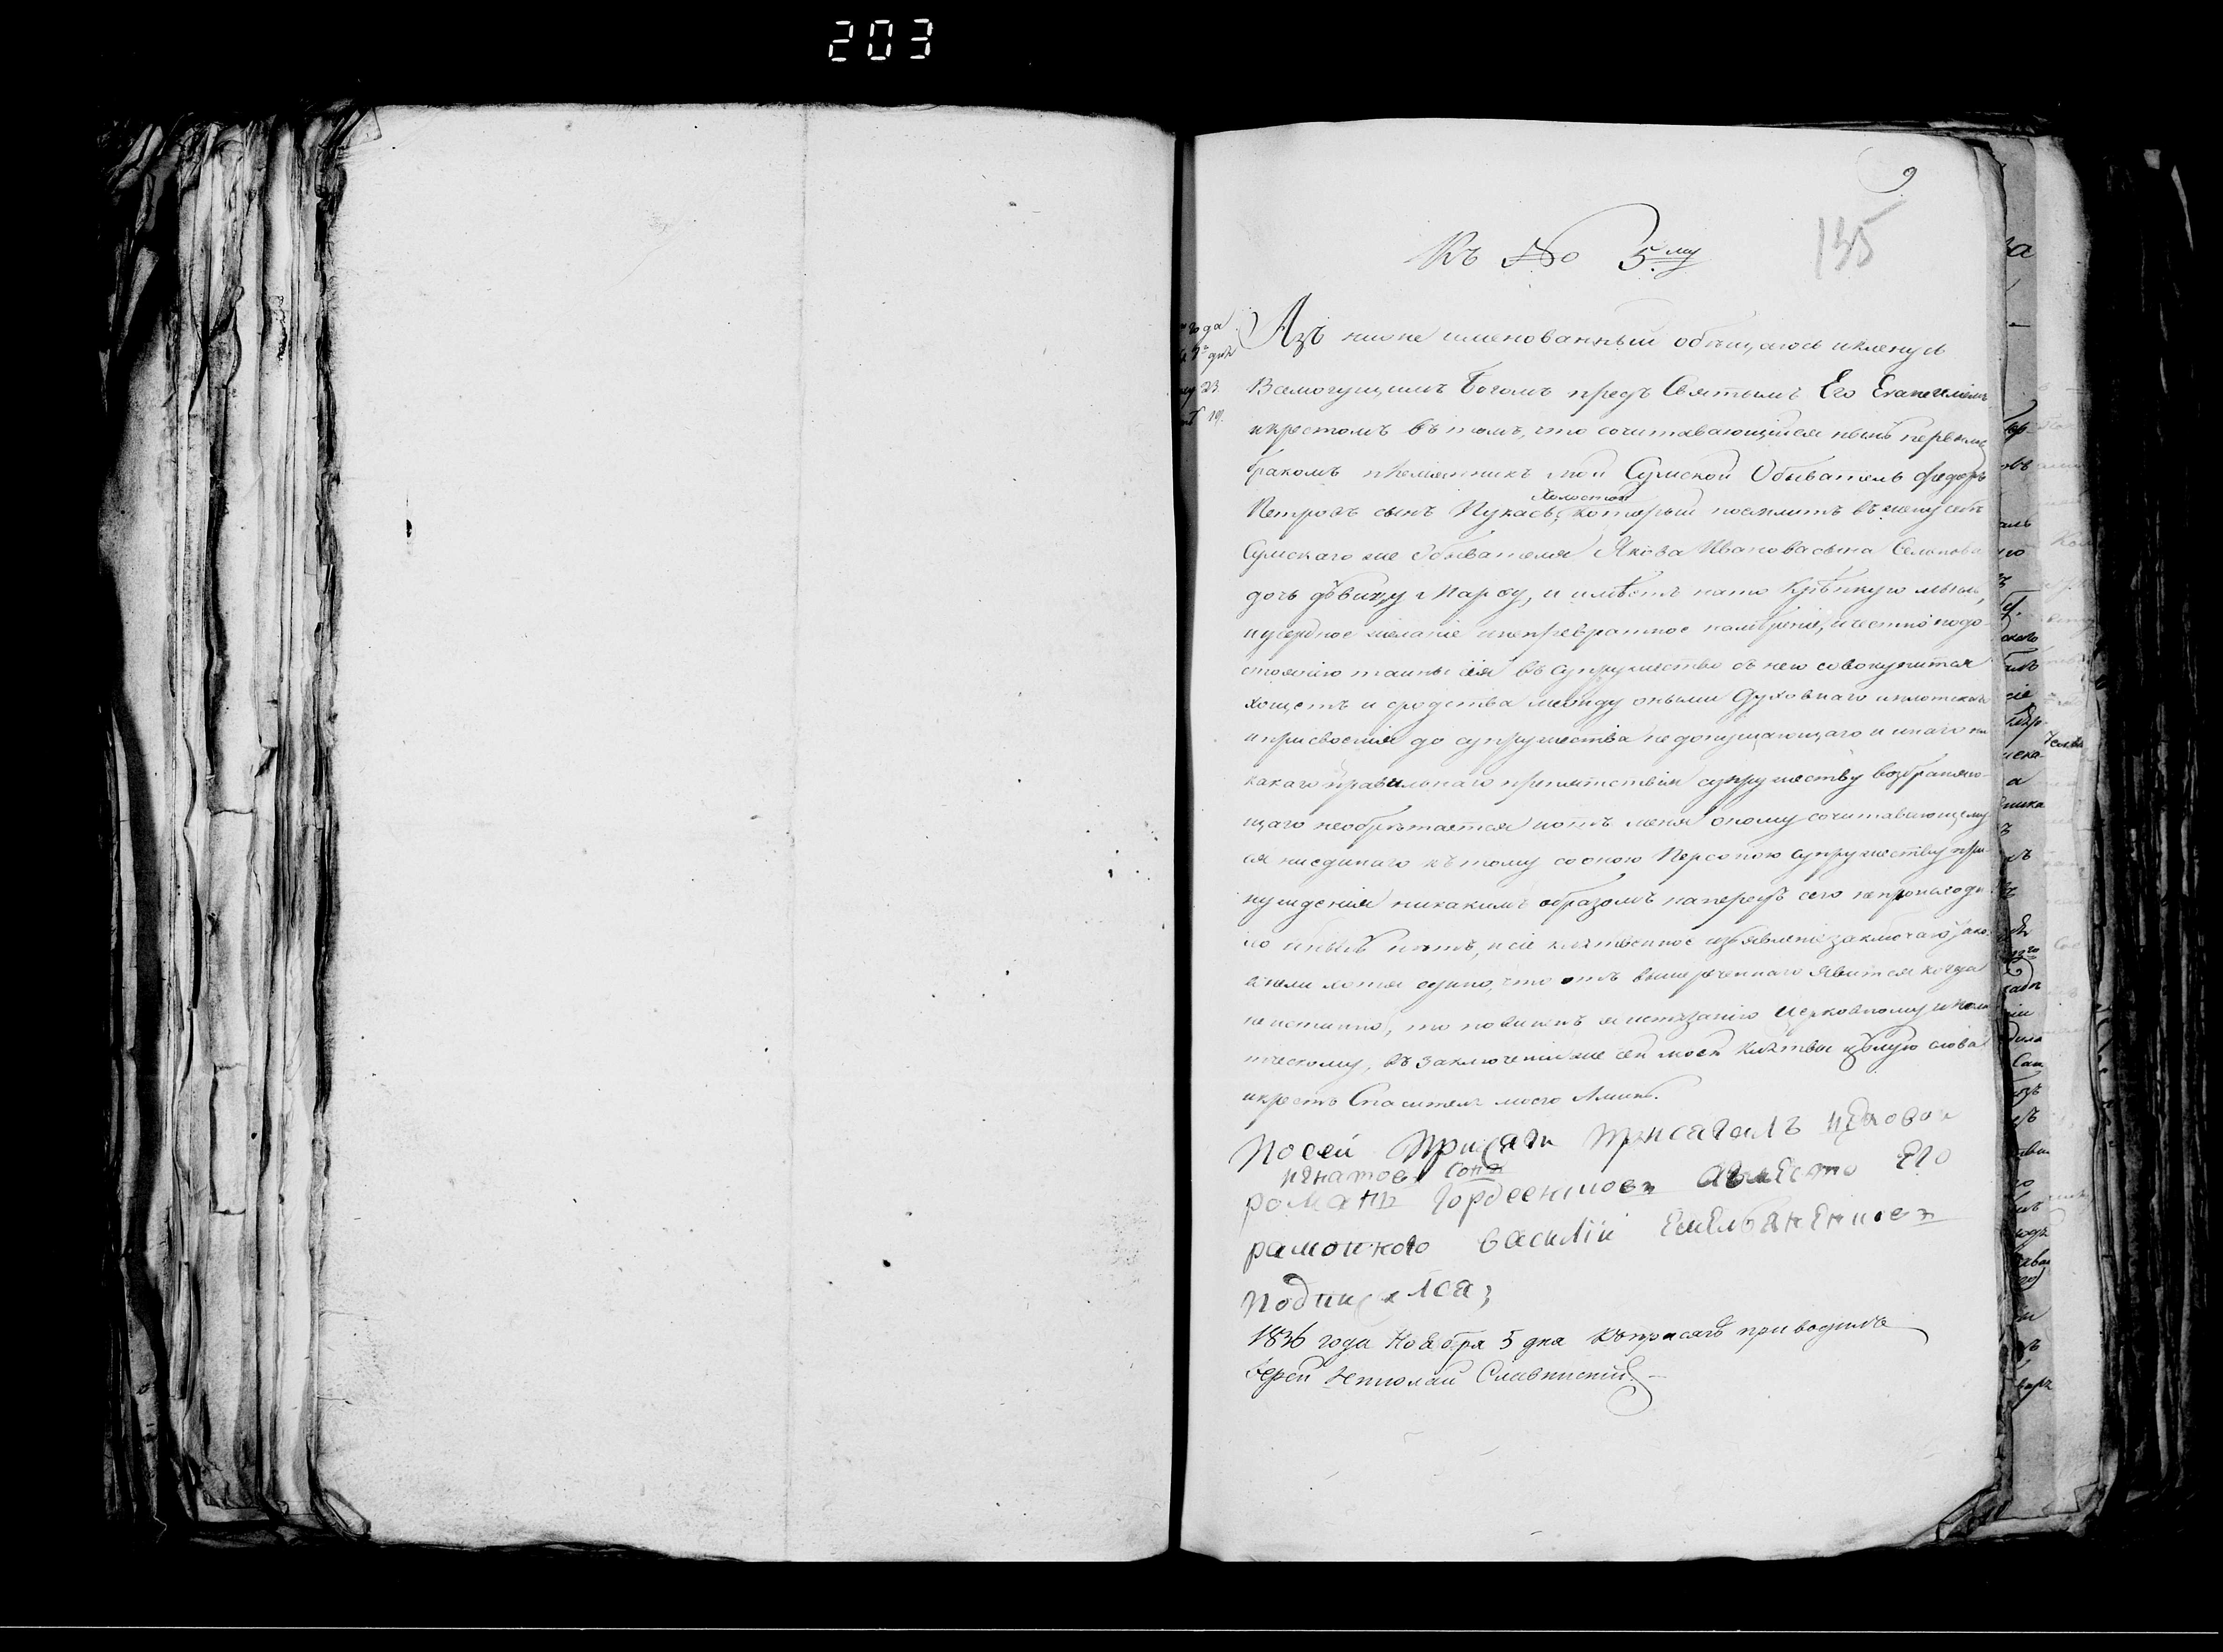 203
9
135
Къ No 5му
Азъ ниже именованный обещаюсь и кленусь
Всемогущимъ Богомъ предъ Святымъ Его Евангелiемъ
и крестомъ въ томъ, что сочитавающiйся нынѣ первымъ
бракомъ племянникъ мой Сумской Обыватель Федоръ
Холостой
Петровъ сынъ который поемлитъ въ жену себѣ
Сумскаго же обывателя Якова Иванова сына
дочь дѣвицу Марфу, и имѣетъ на то крѣпкую мысль,
и усердное желанiе и непревратное намѣренiе, и честно по до-
стоянiю тайны сея въ супружество съ нею совокупится
хощетъ и сродства между оными Духовнаго и плотскаго
и присвоенiя до супружества не допущающаго и инаго ни
какаго правильнаго препятствiя супружеству возбраняю-
щаго необрѣтается и отъ меня оному сочитавающему
ся ни единаго къ тому со оною Персоною супружеству при-
нужденiя никакимъ образомъ напередъ сего непроизходи
ло и нынѣ нѣтъ, и сiе клятвенное изъявленiе заключаю
ежели хотя едино, что отъ вышереченнаго явится когда
неистинно, то повиненъ я истязанiю церковному и
тическому, въ заключенiи же сей моей клятвы цѣлую слова
и крестъ Спасителя моего Аминь.
По сей присяги присягалъ
игнатов сонъ
романъ Гордеенковъ Его
василiй Емельяненковъ
подписался;
1836 года Ноября 5 дня къ присягѣ приводилъ
Iерей Николай